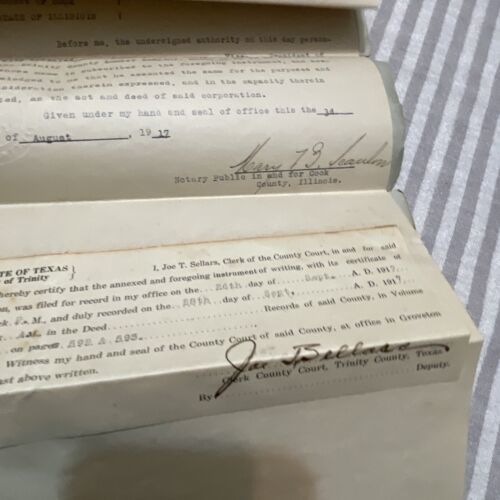 STATE OF ILLINOIS
Before me, the undersigned authority on this day person-
is subscribed to the foregoing instrument, and
to me that he executed the same for the purposes and
consideration therein expressed, and in the capacity therein
as the act and deed of said corporation.
Given under my hand and seal of office this the 3d
of August, 1917
Notary Public in and for Cook
County, Illinois.
I, Joe T. Sellars, Clerk of the County Court, in and for said
TE OF TEXAS
of Trinity
hereby certify that the annexed and foregoing instrument of writing, with its certificate of
on, was filed for record in my office on the 26th day of Sept. A. D. 1917
M., and duly recorded on the 28th day of Sept. A. D. 1917,
M. in the Deed Records of said County, in Volume
on pages 592 & 593.
Witness my hand and seal of the County Court of said County, at office in Groveton
ast above written.
Joe T Sellars
Clerk County Court, Trinity County, Texas
By Deputy.